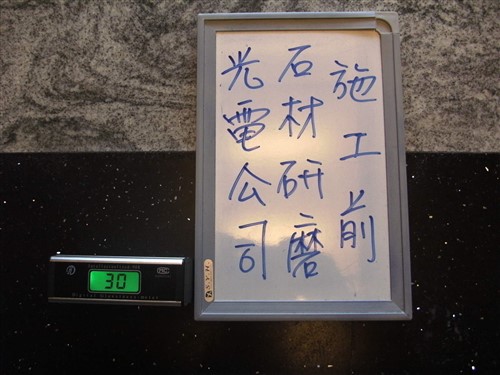 施工前
石材研磨
光電公司
30
Digital Glossiness Meter